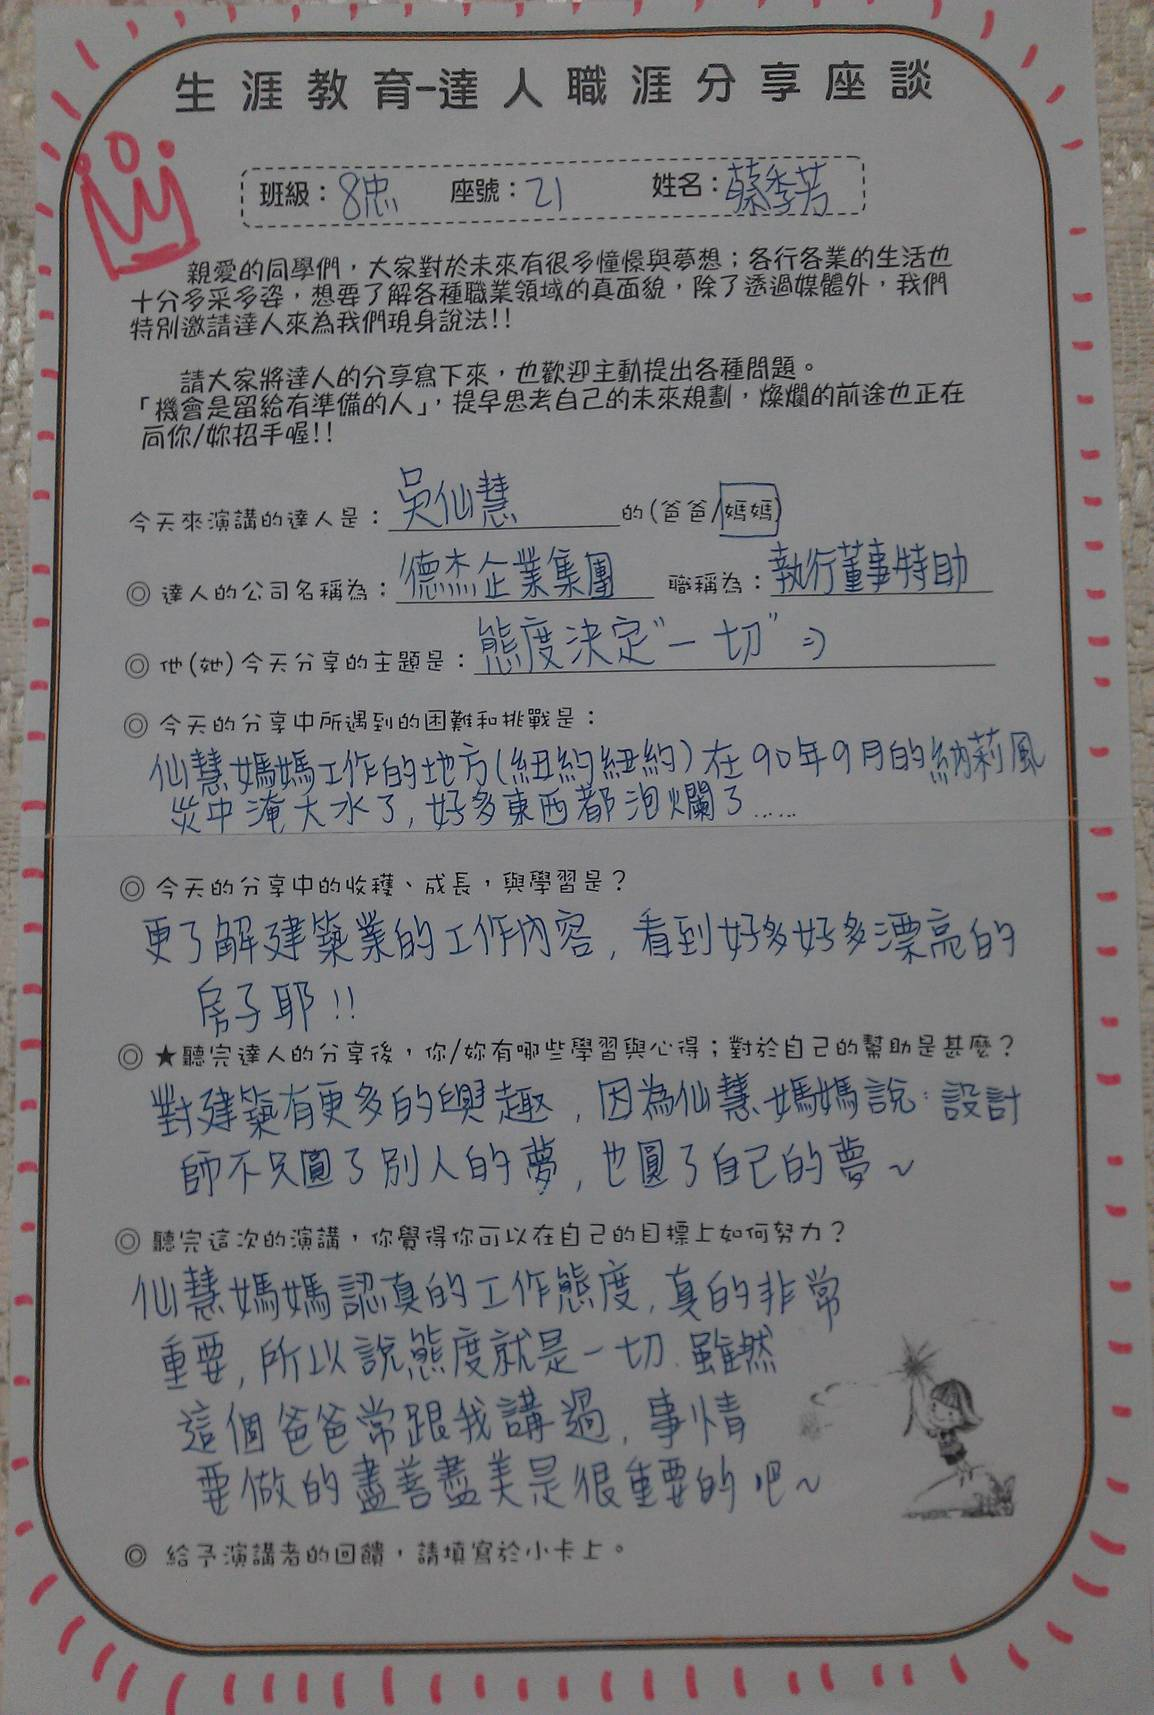 生涯教育-達人職涯分享座談
班級：8忠 座號：21 姓名：蔡季芳
親愛的同學們，大家對於未來有很多憧憬與夢想；各行各業的生活也
十分多采多姿，想要了解各種職業領域的真面貌，除了透過媒體外，我們
特別邀請達人來為我們現身說法!!
請大家將達人的分享寫下來，也歡迎主動提出各種問題。
「機會是留給有準備的人」，提早思考自己的未來規劃，燦爛的前途也正在
向你/妳招手喔!!
今天來演講的達人是：吳仙慧的(爸爸/媽媽)
◎ 達人的公司名稱為：德杰企業集團 職稱為：執行董事特助
◎ 他(她)今天分享的主題是：態度決定"一切" =)
◎ 今天的分享中所遇到的困難和挑戰是：
仙慧媽媽工作的地方(紐約紐約)在90年9月的納莉風
災中淹大水了,好多東西都泡爛了......
◎ 今天的分享中的收穫、成長，與學習是？
更了解建築業的工作內容,看到好多好多漂亮的
房子耶!!
◎ ★聽完達人的分享後，你/妳有哪些學習與心得；對於自己的幫助是甚麼？
對建築有更多的興趣,因為仙慧媽媽說:設計
師不只圓了別人的夢,也圓了自己的夢~
◎ 聽完這次的演講，你覺得你可以在自己的目標上如何努力？
仙慧媽媽認真的工作態度,真的非常
重要,所以說態度就是一切.雖然
這個爸爸常跟我講過,事情
要做的盡善盡美是很重要的吧~
◎ 給予演講者的回饋，請填寫於小卡上。